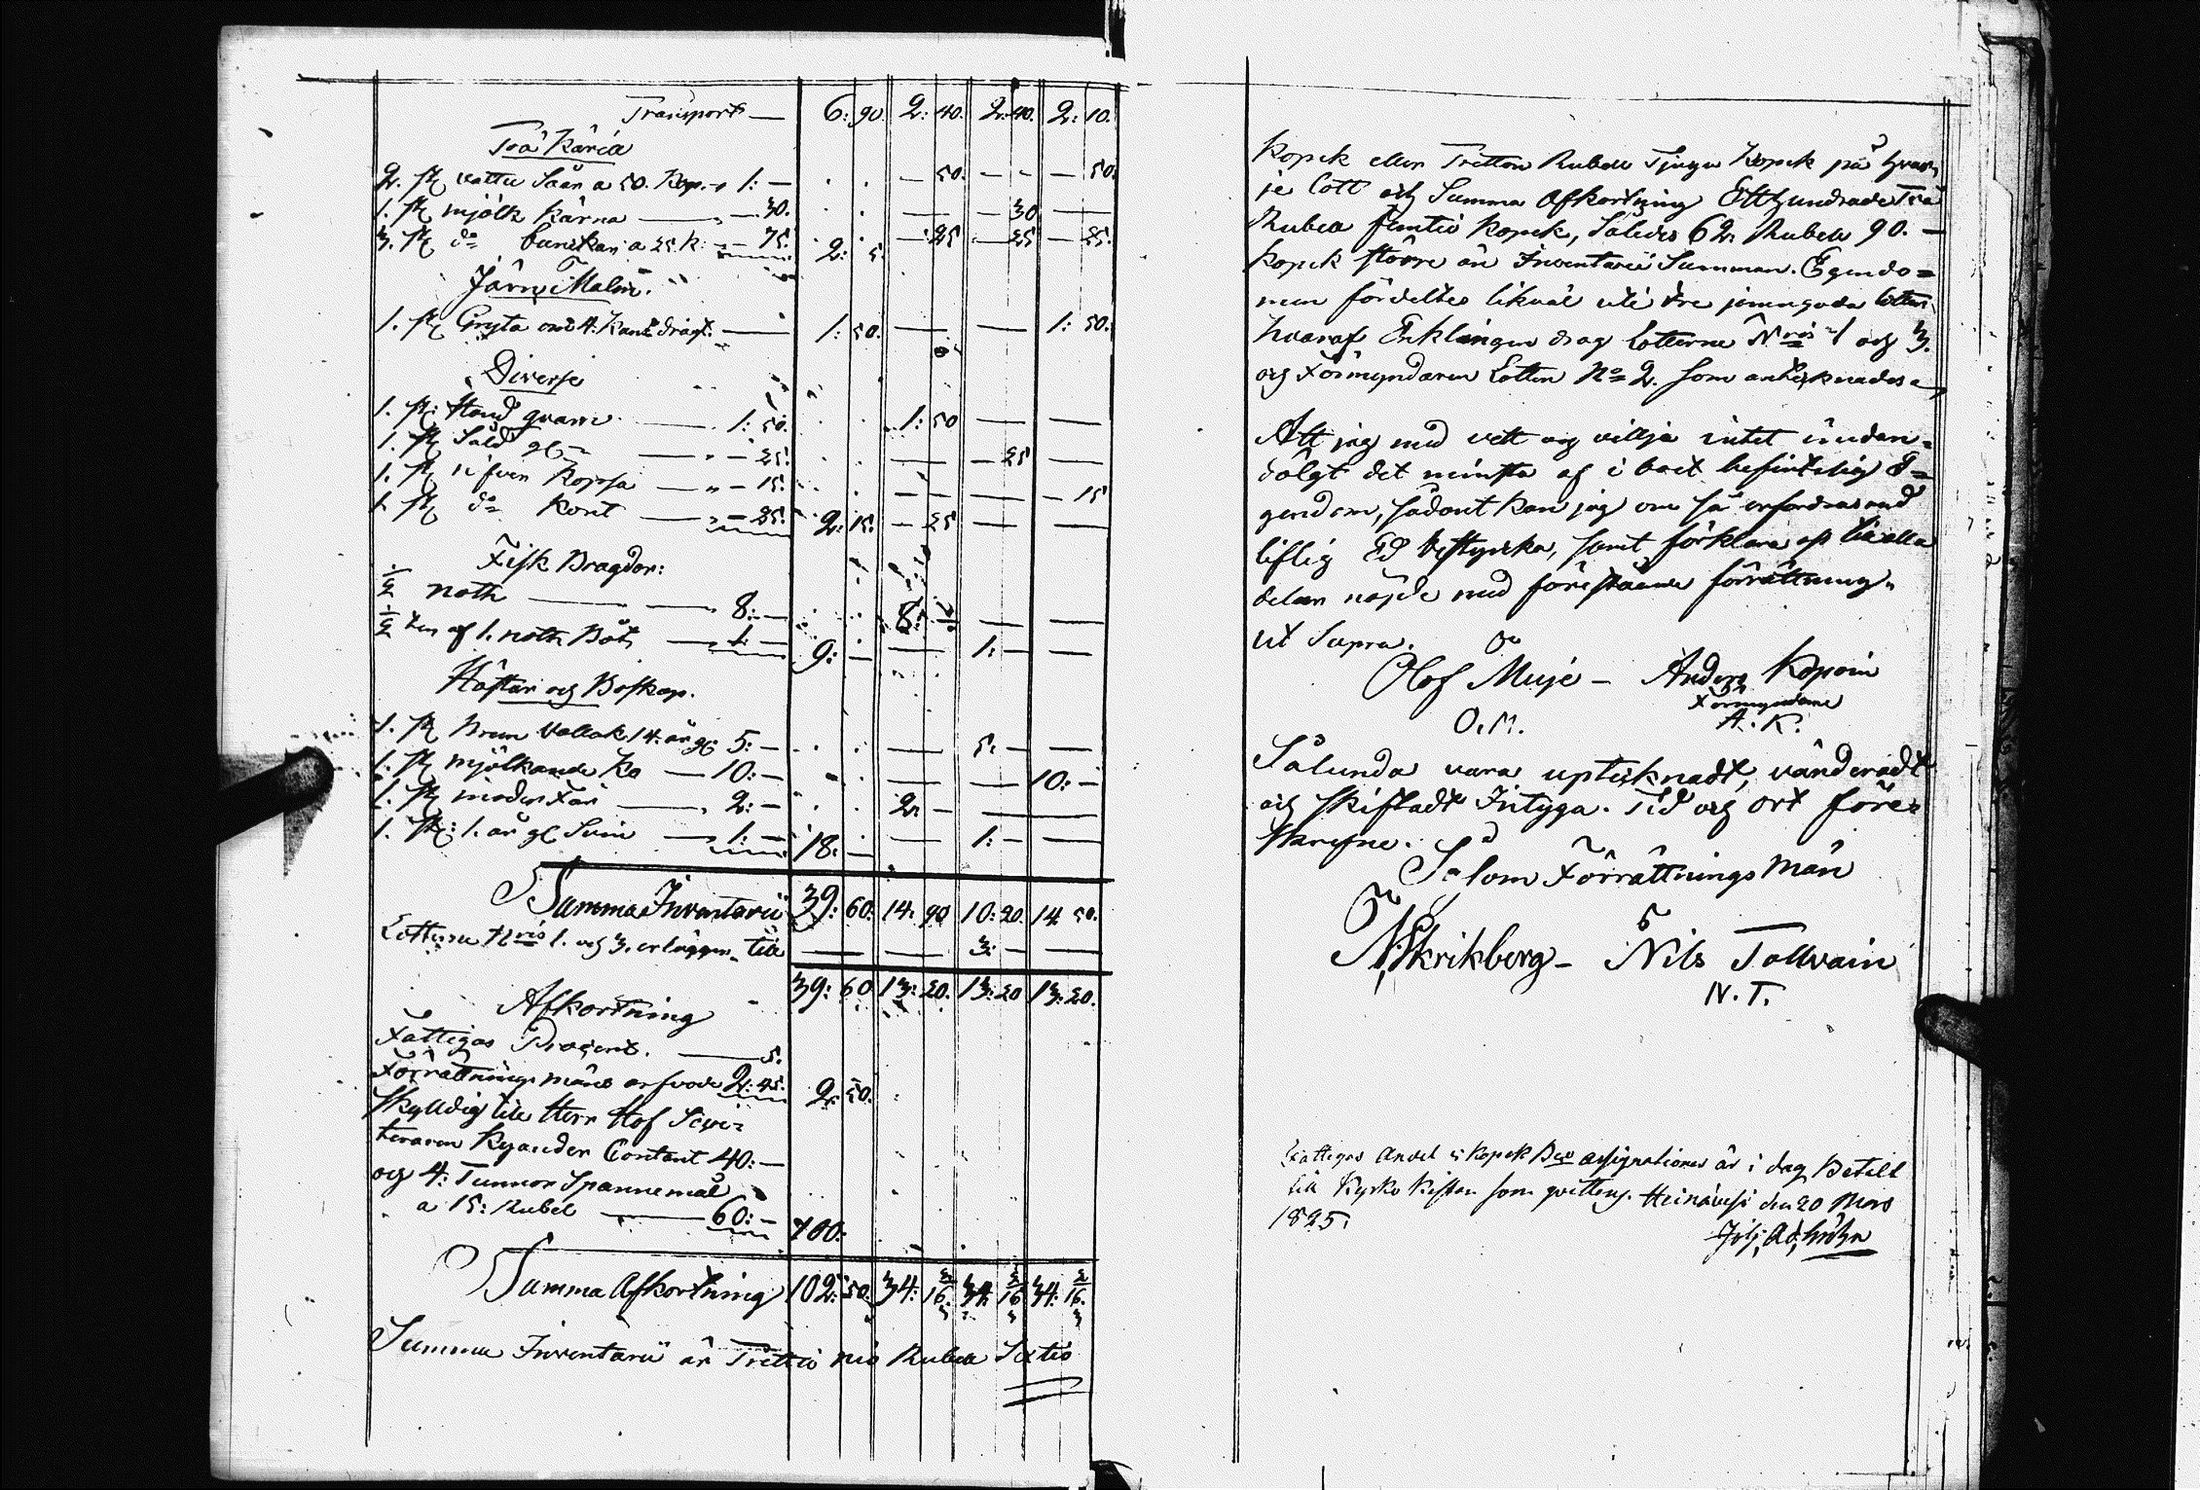 Transport — 6: 90. 2: 40. 2: 40. 2: 10.
Trä Käril
2. st vattu Såår a 50. Kop. 1: — — 50. — — — 50.
1. st mjölk kärna — 30. — — 30 —
3. st do bunckar a 25 k: — 75. 2: 5. — 25 — 25 — 25.
Järn Malm.
1. st Gryta om 4. Kann drägt. — 1: 50. — — 1: 50.
Diverse
1. st: Hand qvarn — 1: 50. 1: 50 — —
1. st Såld gl — 25. — — 25 —
1. st näfver Koppa — 15. — — — 15
1. st do Kont — 25. 2: 15. — 25 — —
Fisk Bragder:
1/2 noth — 8: — 8: — — —
1/2 ten af 1. noth Båt — 1 — 9: — — 1: — —
Hästar och Boskap.
1. st Brun Vallak 14. år gl 5: — — 5: — —
1. st mjölkande Ko — 10: — — — 10: —
1. st moder Får — 2: — 2: — —
1. st: 1. år gl Svin — 1: — 18: — — 1: — —
Summa Inventarii 39: 60: 14: 90 10: 20. 14 50.
Lotterne Nris 1. och 3. erlägger till — — 3: — —
39: 60 13: 20. 13: 20 13: 20.
Afkortning
Fattigas Procent. — 5.
Förrättnings Mäns arfvode 2: 45. 2: 50.
Skyldig till Herr Hof
Kyander Contant 40: —
och 4: Tunnor Spannemål
a 15: Rubel — 60: — 100:
Summa Afkortning 102: 50. 34: 16 2/3 34: 16 2/3 34: 16 2/3
Summa Inventarii är Trettio nio Rubel Sextio
Kopek eller Tretton Rubel Tjugu Kopek på hvar
je Lott och Summa Afkortning Etthundrade Två
Rubel femtio Kopek, Således 62. Rubel 90. —
Kopek större än Inventarii Summan. Egendo=
men fördeltes likväl uti tre jemngoda lotter
hvaraf Enklingen drog Lotterne Nris 1 och 3.
och Förmyndaren Lotten No 2. som antecknades
Att jag med vett och villja intet undan=
dölgt det minsta af i boet befintelig E=
gendom, sådant kan jag om så erfordras med
liflig Ed bestyrka, samt förklara oss till alla
delar nöjde med förestående förrättning.
ut Supra.
Olof Muje — Anders Kopoin
Förmyndare
O. M. A. K.
Sålunda vara uptecknadt, värderadt
och skiftadt Intyga. Tid och ort före=
skrefne.
Såsom Förrättnings Män
Skrikberg — Nils Tallvain
N. T.
Fattigas Andel 5 Kopek Bco assignationer är i dag Betalt
till Kyrko Kistan som qvitteras. Heinävesi den 20 Mars
1825.